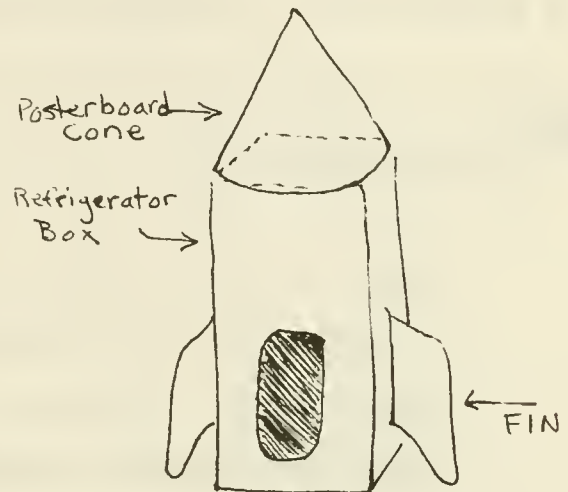 Posterboard
Cone
Refrigerator
Box
FIN